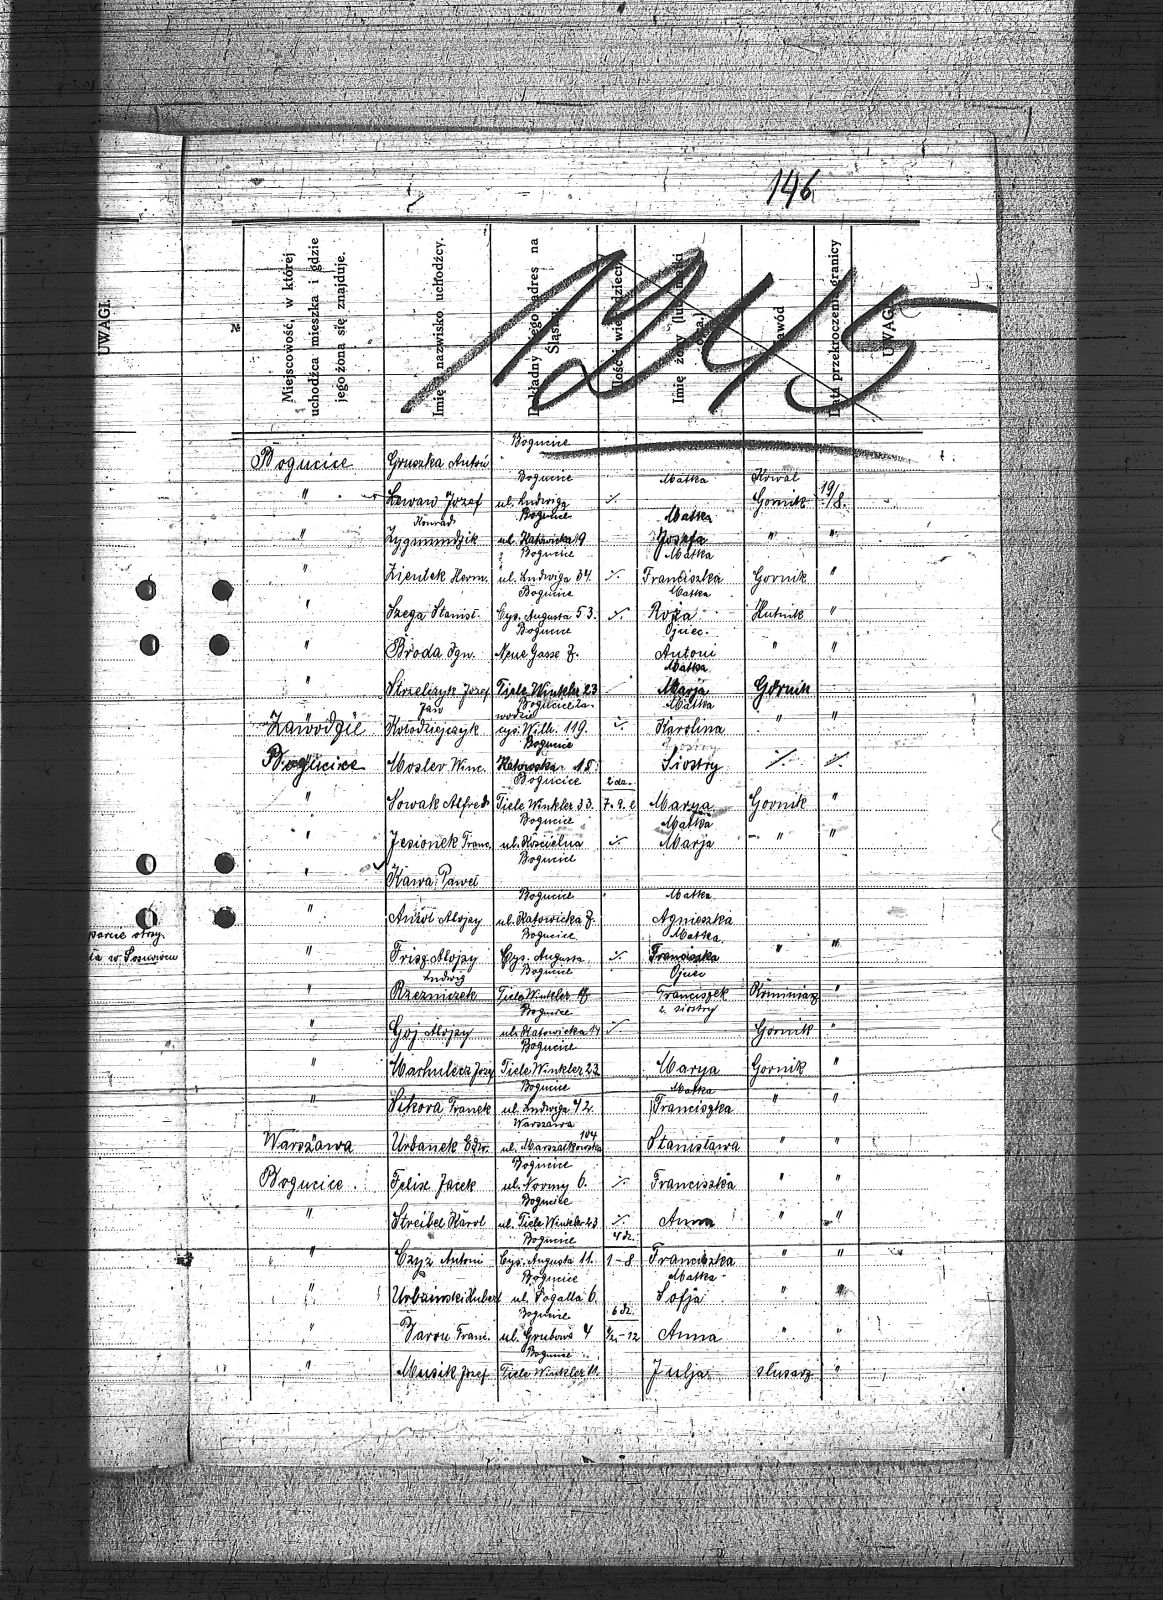 146
1245
UWAGI.
№
Miejscowość, w której uchodźca mieszka i gdzie jego żona się znajduje.
Imię i nazwisko uchodźcy.
Dokładny jego adres na Śląsku.
Ilość i wiek dzieci
Imię żony (lub matki ojca.)
Zawód
Data przekroczenia granicy
UWAGI.
Bogucice
Bogucice Gruszka Antoni
Bogucice Matka Kowal
" Józef ul. Ludwigą ./. Górnik 19/8.
Konrad Bogucice Matka
" Zygmundzik ul. Katowicka 19 Josefa " "
Bogucice Matka
" Zientek Herm. ul. Ludwiga 34. ./. Franciszka Gornik "
Bogucice Matka
" Szega Stanisł. Cys. Augusta 53. ./. Roża Hutnik "
Bogucice Ojciec.
" Broda Ign. Neue Gasse 7. Antoni " "
Matka
" Strzelczyk Jozef Tiele Winkler 23 Marja Górnik
Jan Bogucice Za- Matka
wodzie
Zawodzie Kołodziejczyk cys. Wilh. 119. ./. Karolina " "
Bogucice
Bogucice Moslev Winc. Katowska 18. Siostry ./. ./.
Bogucice 2 da.
" Sowak Alfred Tiele Winkler 33. Marya Gornik "
Bogucice Matka
" Jesionek Franc. ul. Kościelna ./. Marja " "
Bogucice
" Kawa Paweł
Bogucice Matka
" Anioł Alojzy ul. Katowicka 7. Agnieszka
Bogucice Matka
parcie otrzy-
" Frisz Alojzy Cys. Augusta ./. Franciszka " "
Ludwig Bogucice Ojciec
" Rzezniczek Tiele Winkler 17 Franciszek Kominiarz "
Bogucice 2. siostry
" Goj Alojzy ul. Katowicka 14 ./. Górnik "
Bogucice
" Marhulecz Jozef Tiele Winkler 23 Marya Gornik "
Bogucice Matka
" Sikora Franek ul. Ludwiga 42. Franciszka " "
Warszawa
104
Warszawa Urbanek Edw. ul. Marszalkowska Stanisława " "
Bogucice
Bogucice. Felix Jacek ul. Normy 6. ./. Franciszka " "
Bogucice
" Streibel Karol ul. Tiele Winkler 23 ./. Anna " "
Bogucice 4 dz.
" Czyż Antoni Cys. Augusta 11. 1-8 Franciszka " "
Bogucice Matka
" Urbainski Hubert ul. Pogalla 6. Sofja " "
Bogucice 6 dz.
" Franc. ul. Grubowa 4 Anna " "
Bogucice
" Musik Jozef Tiele Winkler 11. Julja slusarz "